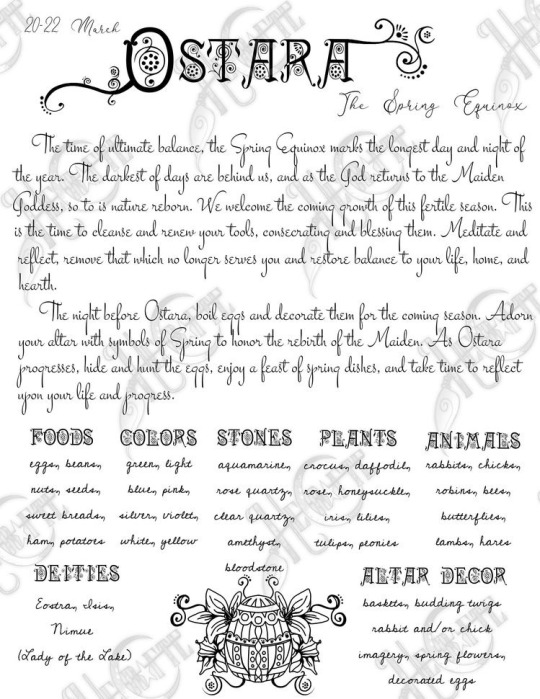 20-22 March
OSTARA
The Spring Equinox
The time of ultimate balance, the Spring Equinox marks the longest day and night of
the year. The darkest of days are behind us, and as the God returns to the Maiden
Goddess, so to is nature reborn. We welcome the coming growth of this fertile season. This
is the time to cleanse and renew your tools, consecrating and blessing them. Meditate and
reflect, remove that which no longer serves you and restore balance to your life, home, and
hearth.
The night before Ostara, boil eggs and decorate them for the coming season. Adorn
your altar with symbols of Spring to honor the rebirth of the Maiden. As Ostara
progresses, hide and hunt the eggs, enjoy a feast of spring dishes, and take time to reflect
upon your life and progress.
FOODS
eggs, beans,
nuts, seeds,
sweet breads,
ham, potatoes
COLORS
green, light
blue, pink,
silver, violet,
white, yellow
STONES
aquamarine,
rose quartz,
clear quartz,
amethyst,
bloodstone
PLANTS
crocus, daffodils,
rose, honeysuckle,
iris, lilies,
tulips, peonies
ANIMALS
rabbits, chicks,
robins, bees,
butterflies,
lambs, hares
DEITIES
Eostra, Isis,
Nimue
(Lady of the Lake)
ALTAR DECOR
baskets, budding twigs
rabbit and/or chick
imagery, spring flowers,
decorated eggs